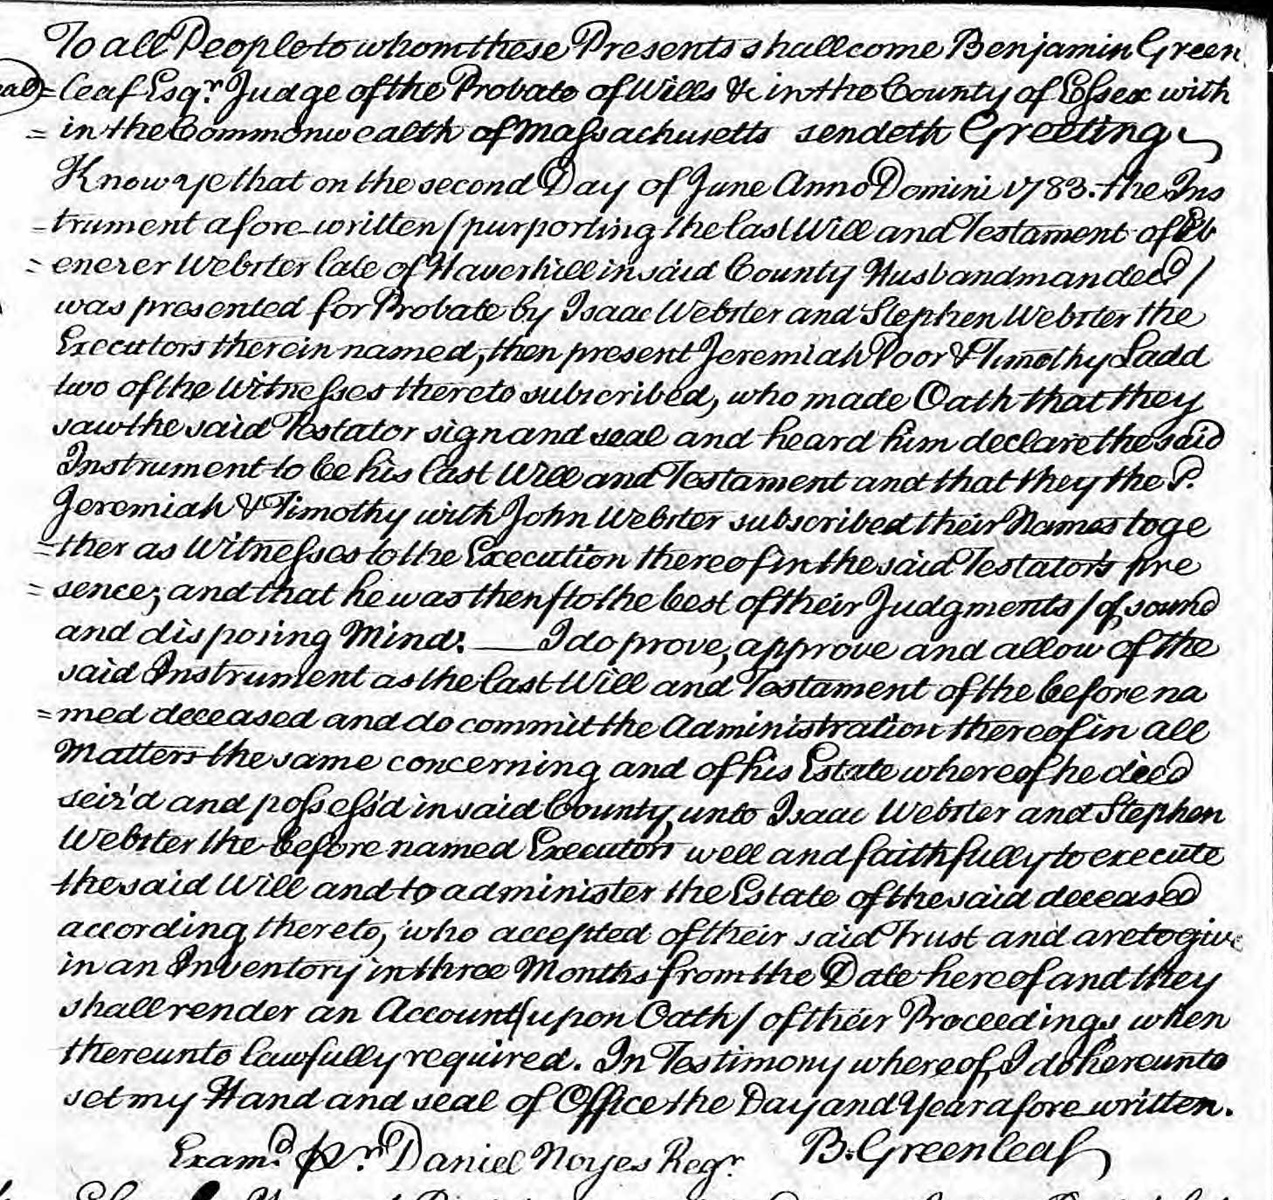 To all People to whom these Presents shall come Benjamin Green
=leaf Esqr. Judge of the Probate of Wills &c in the County of Essex with
=in the Commonwealth of Massachusetts sendeth Greeting.
Know ye that on the second Day of June Anno Domini 1783. the Ins
=trument afore written /purporting the last Will and Testament of Eb
=enezer Webster late of Haverhill in said County Husbandman decd/
was presented for Probate by Isaac Webster and Stephen Webster the
Executors therein named, then present Jeremiah Poor & Timothy Ladd
two of the Witnesses thereto subscribed, who made Oath that they
saw the said Testator sign and seal and heard him declare the said
Instrument to be his last Will and Testament and that they the sd.
Jeremiah & Timothy with John Webster subscribed their Names toge
=ther as Witnesses to the Execution thereof in the said Testator's pre
=sence; and that he was then /to the best of their Judgments/ of sound
and disposing Mind: — I do prove, approve and allow of the
said Instrument as the last Will and Testament of the before na
=med deceased and do commit the Administration thereof in all
Matters the same concerning and of his Estate whereof he died
seiz'd and possess'd in said County, unto Isaac Webster and Stephen
Webster the before named Executors well and faithfully to execute
the said Will and to administer the Estate of the said deceased
according thereto, who accepted of their said Trust and are to give
in an Inventory in three Months from the Date hereof and they
shall render an Account /upon Oath/ of their Proceedings when
thereunto lawfully required. In Testimony whereof, I do hereunto
set my Hand and seal of Office the Day and Year afore written.
Examd. pr. Daniel Noyes Regr. B. Greenleaf